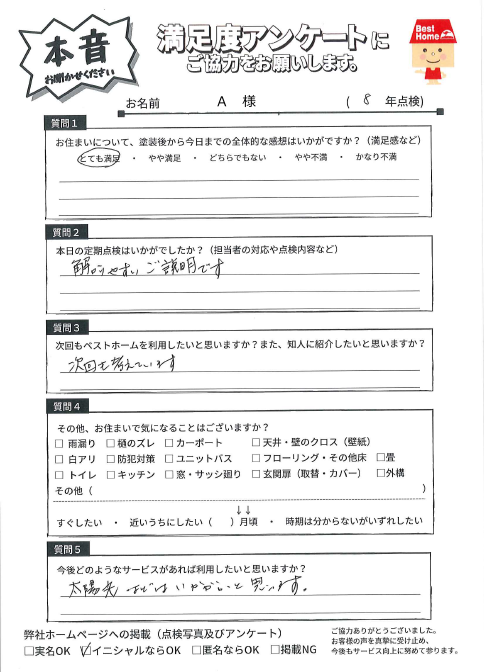 本音
お聞かせください
満足度アンケートに
ご協力をお願いします。
Best
Home
お名前 A 様 ( 8 年点検)
質問1
お住まいについて、塗装後から今日までの全体的な感想はいかがですか？（満足感など）
とても満足 ・ やや満足 ・ どちらでもない ・ やや不満 ・ かなり不満
質問2
本日の定期点検はいかがでしたか？（担当者の対応や点検内容など）
解りやすい ご説明です
質問3
次回もベストホームを利用したいと思いますか？また、知人に紹介したいと思いますか？
次回も考えています
質問4
その他、お住まいで気になることはございますか？
□ 雨漏り □ 樋のズレ □ カーポート □ 天井・壁のクロス（壁紙）
□ 白アリ □ 防犯対策 □ ユニットバス □ フローリング・その他床 □畳
□ トイレ □ キッチン □ 窓・サッシ廻り □ 玄関扉（取替・カバー） □外構
その他（ ）
↓↓
すぐしたい ・ 近いうちにしたい（ ）月頃 ・ 時期は分からないがいずれしたい
質問5
今後どのようなサービスがあれば利用したいと思いますか？
太陽光 などは いかがかと 思います。
弊社ホームページへの掲載（点検写真及びアンケート）
□実名OK ☑イニシャルならOK □匿名ならOK □掲載NG
ご協力ありがとうございました。
お客様の声を真摯に受け止め、
今後もサービス向上に努めて参ります。